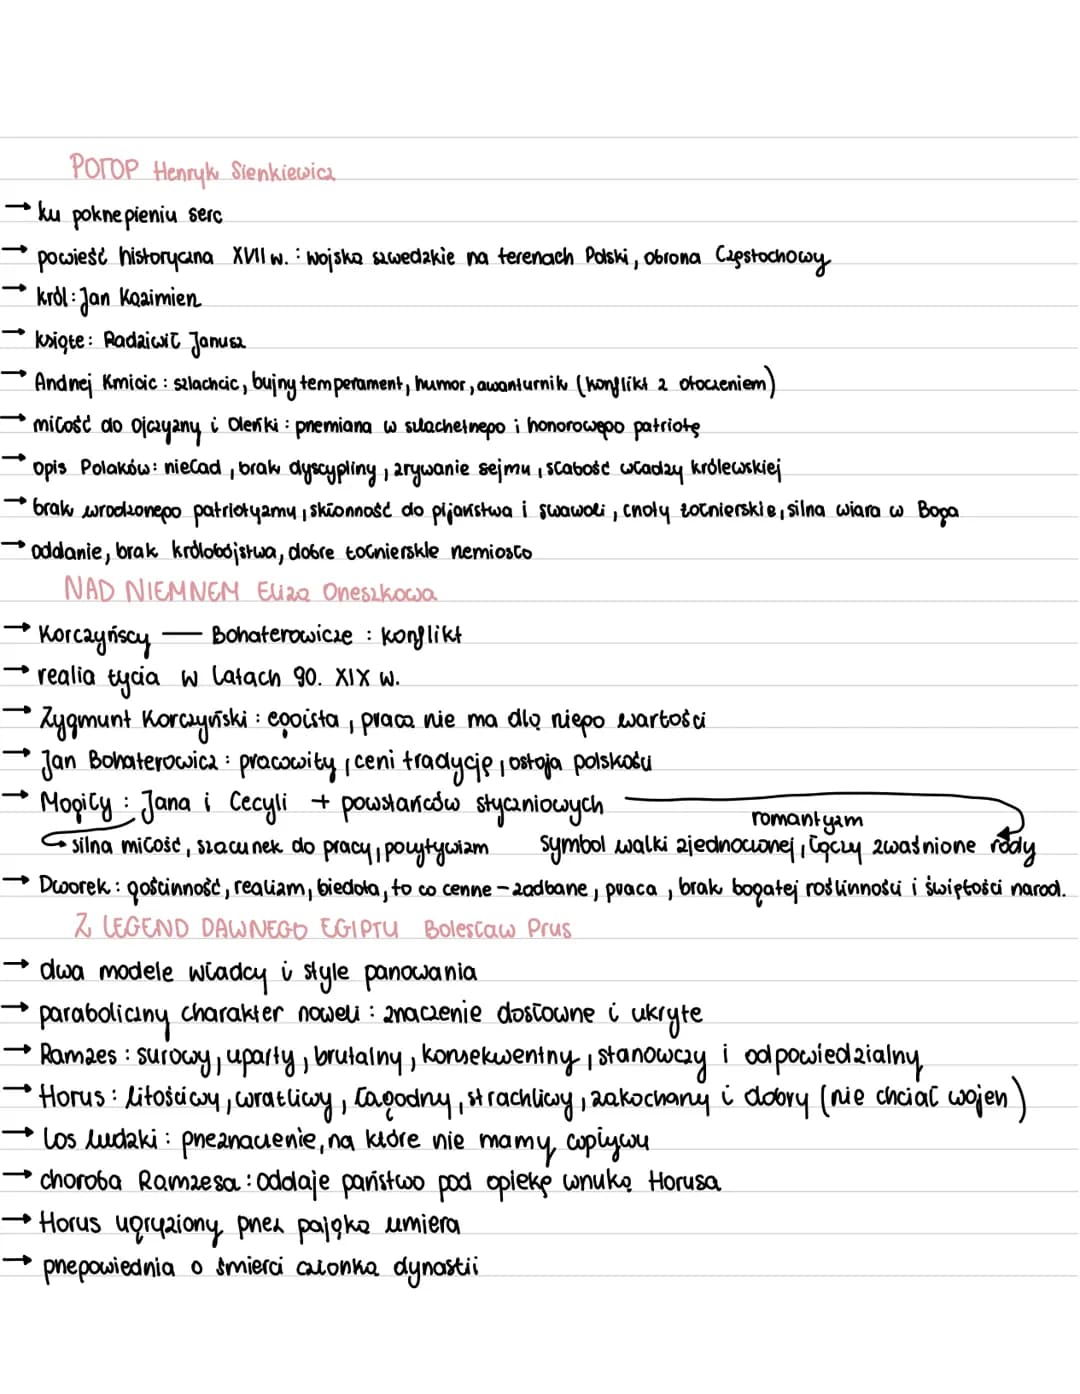 POTOP Henryk Sienkiewicz
→ ku pokrzepieniu serc
→ powieść historyczna XVII w. : wojska szwedzkie na terenach Polski, obrona Częstochowy
→ król: Jan Kazimierz
→ książe: Radziwił Janusz
→ Andrzej Kmicic : szlachcic, bujny temperament, humor, awanturnik (konflikt z otoczeniem)
→ miłość do ojczyzny i Oleńki : przemiana w szlachetnego i honorowego patriotę
→ opis Polaków: nieład, brak dyscypliny, zrywanie sejmu, słabość władzy królewskiej
→ brak wrodzonego patriotyzmu, skłonność do pijaństwa i swawoli, cnoty żołnierskie, silna wiara w Boga
→ oddanie, brak królobójstwa, dobre żołnierskie rzemiosło
NAD NIEMNEM Eliza Orzeszkowa
→ Korczyńscy — Bohaterowicze : konflikt
→ realia życia w latach 90. XIX w.
→ Zygmunt Korczyński : egoista, praca nie ma dla niego wartości
→ Jan Bohaterowicz : pracowity, ceni tradycję, ostoja polskości
→ Mogiły : Jana i Cecyli + powstańców styczniowych
romantyzm
silna miłość, szacunek do pracy, pozytywizm symbol walki zjednoczonej, łączy zwaśnione rody
→ Dworek : gościnność, realizm, biedota, to co cenne - zadbane, praca, brak bogatej roślinności i świętości narod.
Z LEGEND DAWNEGO EGIPTU Bolesław Prus
→ dwa modele władcy i style panowania
→ paraboliczny charakter noweli : znaczenie dosłowne i ukryte
→ Ramzes : surowy, uparty, brutalny, konsekwentny, stanowczy i odpowiedzialny
→ Horus : litościwy, wrażliwy, łagodny, strachliwy, zakochany i dobry (nie chciał wojen)
→ los ludzki : przeznaczenie, na które nie mamy wpływu
→ choroba Ramzesa : oddaje państwo pod opiekę wnuka Horusa
→ Horus ugryziony przez pająka umiera
→ przepowiednia o śmierci członka dynastii